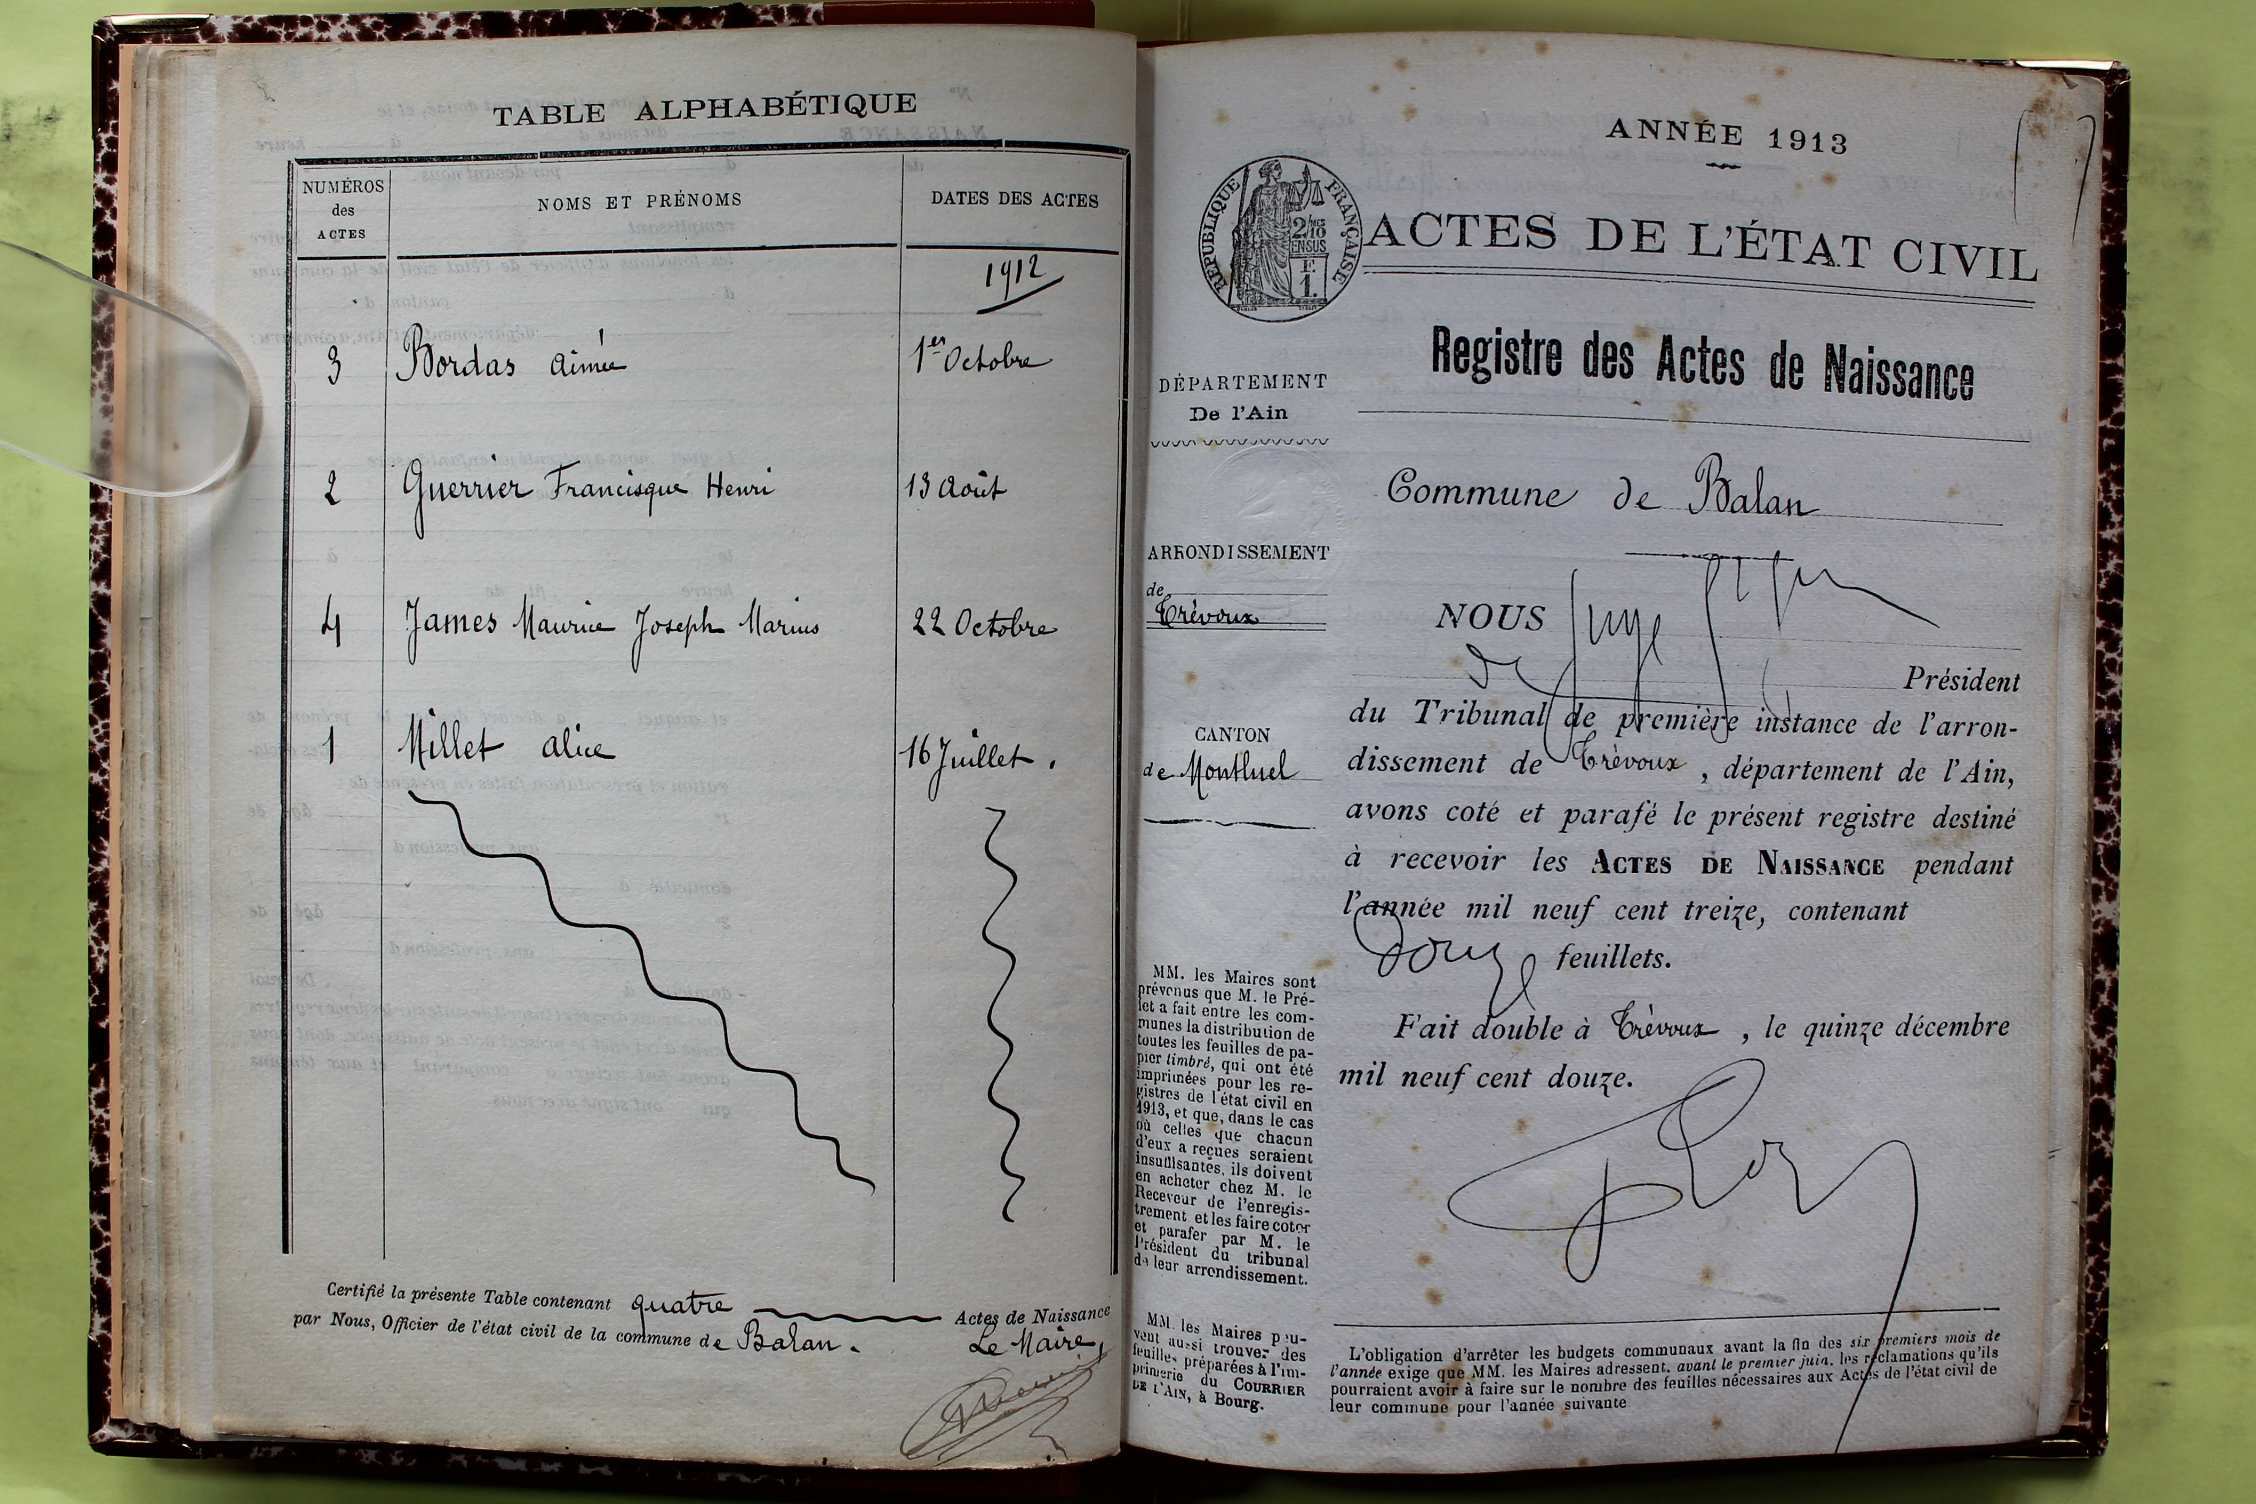 TABLE ALPHABÉTIQUE
NUMÉROS
des
ACTES
NOMS ET PRÉNOMS
DATES DES ACTES
1912
3 Bordas Aimée 1er Octobre
2 Guerrier Francisque Henri 13 Août
4 James Maurice Joseph Marius 22 Octobre
1 Millet Alice 16 Juillet.
Certifié la présente Table contenant quatre Actes de Naissance
par Nous, Officier de l'état civil de la commune de Balan.
Le Maire,
ANNÉE 1913
RÉPUBLIQUE FRANÇAISE
2/10
EN SUS
F.
1.
ACTES DE L'ÉTAT CIVIL
Registre des Actes de Naissance
DÉPARTEMENT
De l'Ain
ARRONDISSEMENT
de
Trévoux
CANTON
de Montluel
MM. les Maires sont
prévenus que M. le Pré-
fet a fait entre les com-
munes la distribution de
toutes les feuilles de pa-
pier timbré, qui ont été
imprimées pour les re-
gistres de l'état civil en
1913, et que, dans le cas
où celles que chacun
d'eux a reçues seraient
insuffisantes, ils doivent
en acheter chez M. le
Receveur de l'enregis-
trement et les faire coter
et parafer par M. le
Président du tribunal
de leur arrondissement.
MM. les Maires peu-
vent aussi trouver des
feuilles préparées à l'im-
primerie du COURRIER
DE L'AIN, à Bourg.
Commune de Balan
NOUS Juge
de Président
du Tribunal de première instance de l'arron-
dissement de Trévoux, département de l'Ain,
avons coté et parafé le présent registre destiné
à recevoir les ACTES DE NAISSANCE pendant
l'année mil neuf cent treize, contenant
douze feuillets.
Fait double à Trévoux, le quinze décembre
mil neuf cent douze.
L'obligation d'arrêter les budgets communaux avant la fin des six premiers mois de
l'année exige que MM. les Maires adressent, avant le premier juin, les réclamations qu'ils
pourraient avoir à faire sur le nombre des feuilles nécessaires aux Actes de l'état civil de
leur commune pour l'année suivante